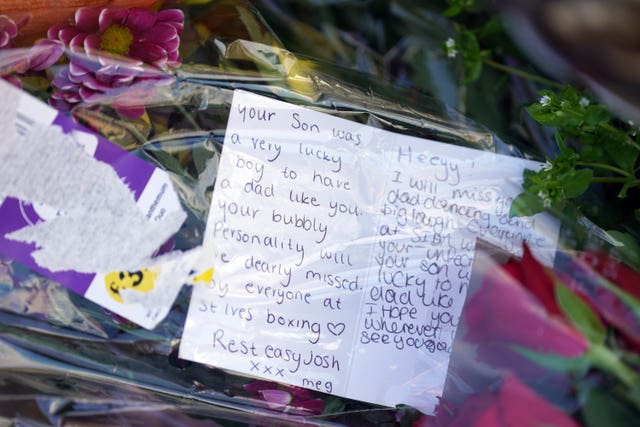 your Son was
a very lucky
boy to have
a dad like you.
your bubbly
Personality will
be dearly missed.
by everyone at
st ives boxing ♡
Rest easy Josh
xxx
meg
Heeyy
I will miss
dad dancing and
big laugh everyone
at
your
your son
lucky to
dad like
I Hope you
wherever
see you
£3